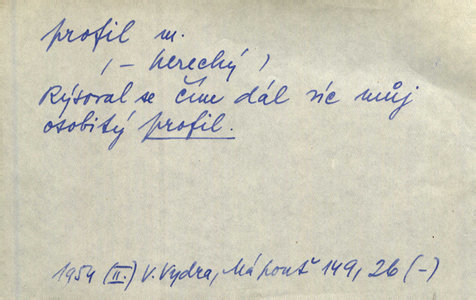 profil m.
(– herecký)
Rýsoval se čím dál víc můj
osobitý profil.
1954 (II.) V. Vydra, Má pouť 149, 26 (–)